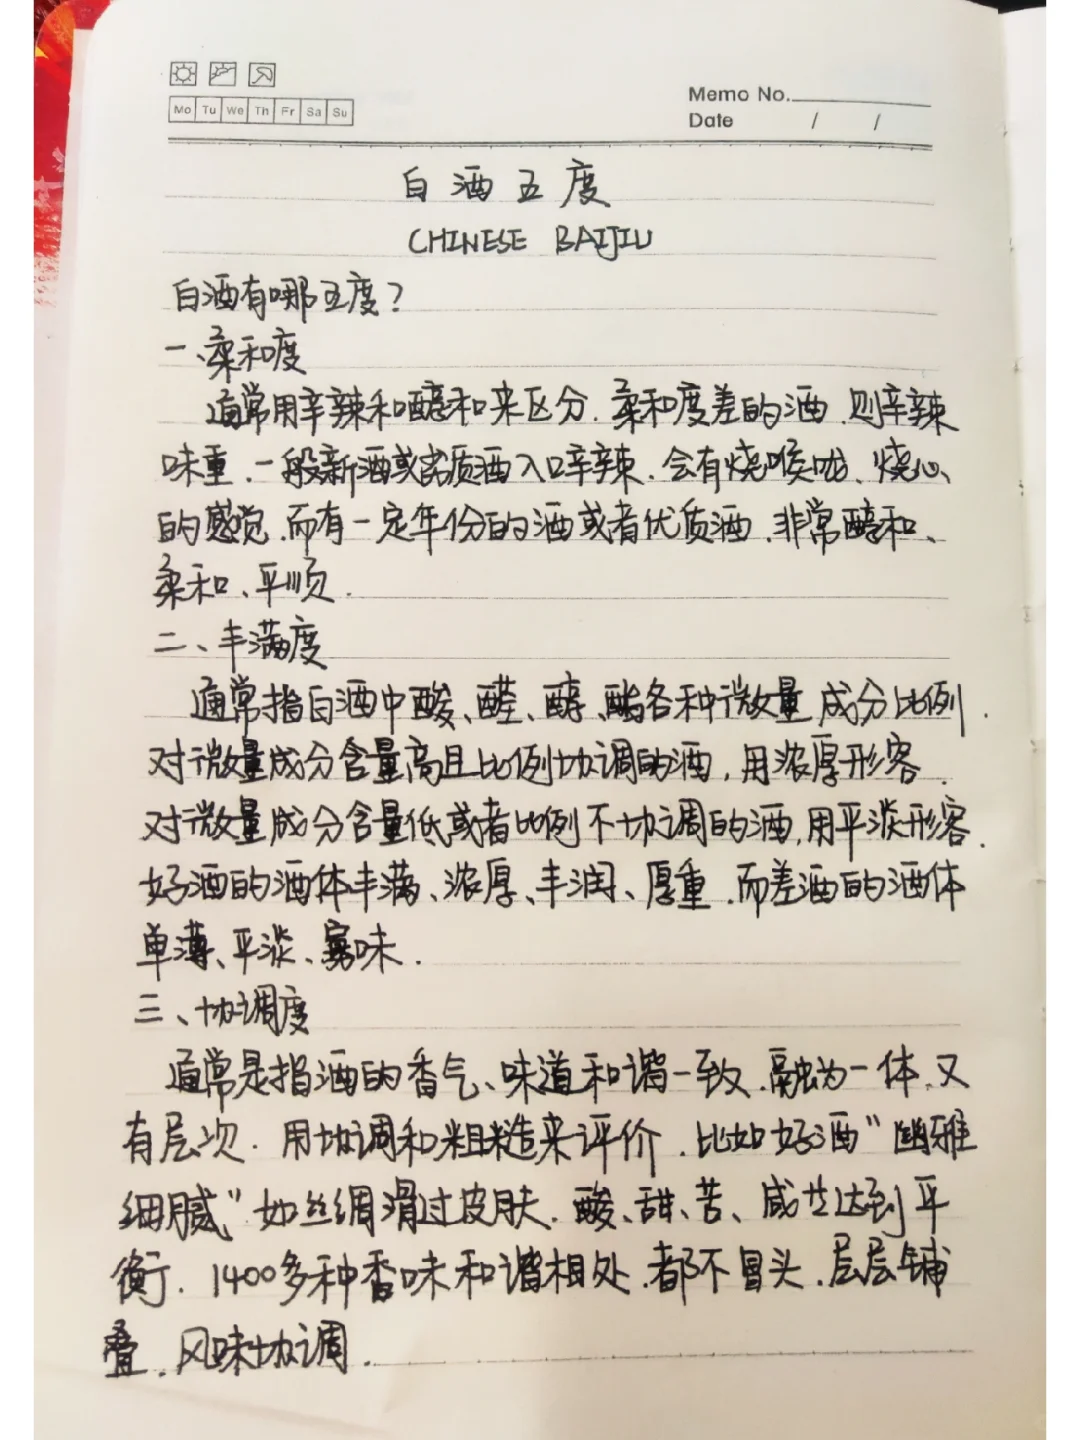 Mo Tu We Th Fr Sa Su
Memo No.
Date / /
白酒五度
CHINESE BAIJIU
白酒有哪五度？
一、柔和度
通常用辛辣和醇和来区分.柔和度差的酒.则辛辣
味重.一般新酒或劣质酒入口辛辣.会有烧喉咙、烧心、
的感觉.而有一定年份的酒或者优质酒.非常醇和、
柔和、平顺.
二、丰满度
通常指白酒中酸、醛、醇、酯各种微量成分比例.
对微量成分含量高且比例协调的酒,用浓厚形容.
对微量成分含量低或者比例不协调的酒,用平淡形容.
好酒的酒体丰满、浓厚、丰润、厚重.而差酒的酒体
单薄、平淡、寡味.
三、协调度
通常是指酒的香气、味道和谐一致.融为一体.又
有层次.用协调和粗糙来评价.比如好酒"幽雅
细腻"如丝绸滑过皮肤.酸、甜、苦、咸其达到平
衡.1400多种香味和谐相处.都不冒头.层层铺
叠.风味协调.